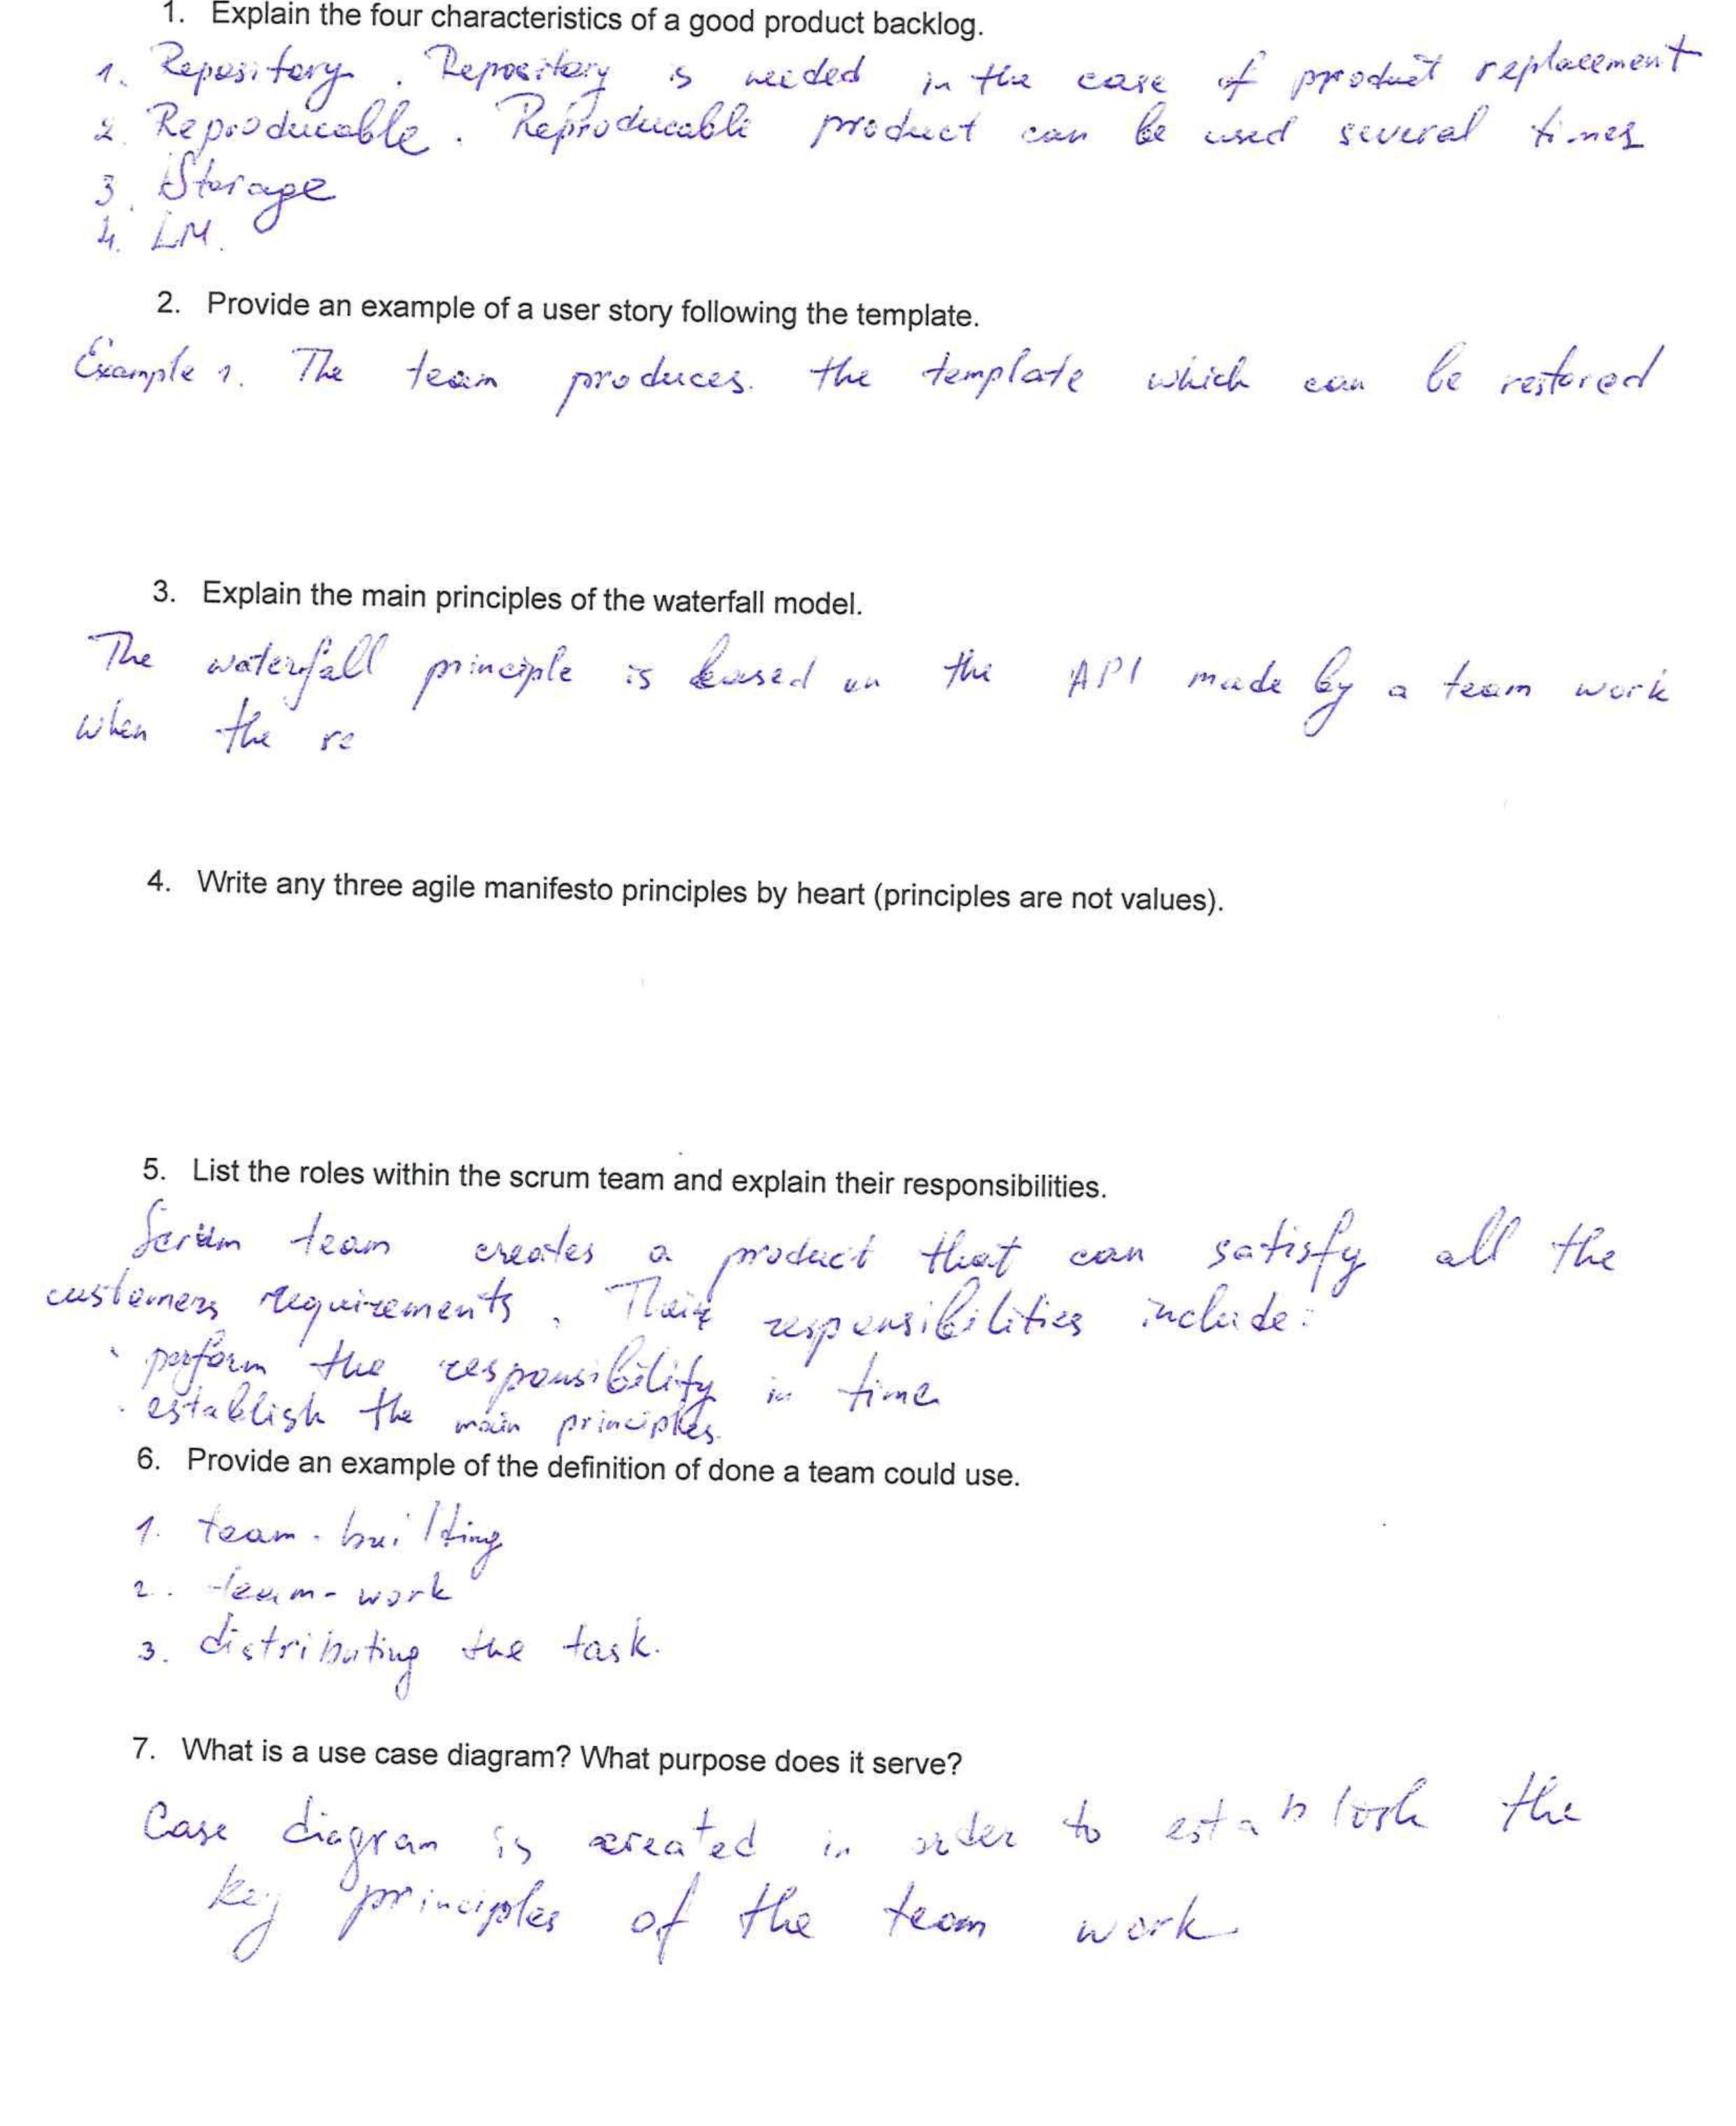 1. Explain the four characteristics of a good product backlog.
1. Repository. Repository is needed in the case of product replacement
2. Reproducable. Reproducable product can be used several times
3. Storage
4. LM.
2. Provide an example of a user story following the template.
Example 1. The team produces the template which can be restored
3. Explain the main principles of the waterfall model.
The waterfall principle is based on the API made by a team work
when the re
4. Write any three agile manifesto principles by heart (principles are not values).
5. List the roles within the scrum team and explain their responsibilities.
Scrum team creates a product that can satisfy all the
customers requirements. Their responsibilities include:
· perform the responsibility in time
· establish the main principles.
6. Provide an example of the definition of done a team could use.
1. team-building
2. team-work
3. distributing the task.
7. What is a use case diagram? What purpose does it serve?
Case diagram is created in order to establish the
key principles of the team work